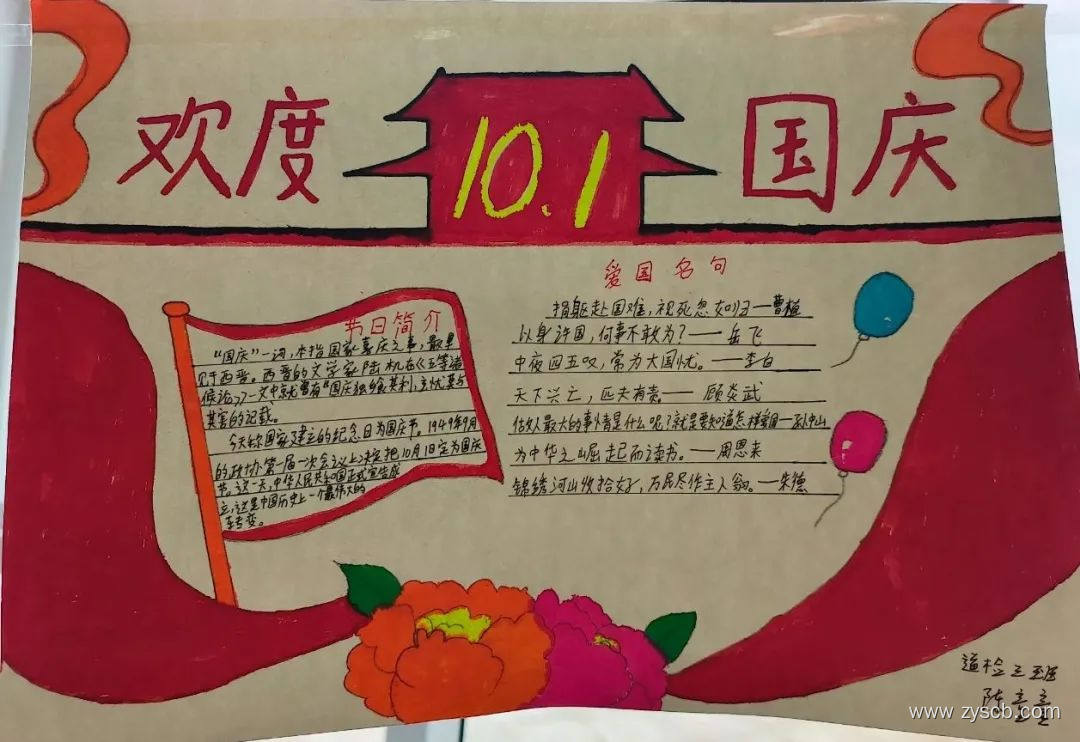 欢度 10.1 国庆
节日简介
"国庆"一词,本指国家喜庆之事,最早
见于西晋。西晋的文学家陆机在《五等诸
候论》一文中就曾有"国庆独飨其利,主忧莫与
其害的记载。
今天称国家建立的纪念日为国庆节。1949年9月
的政协第一届一次会议上决定把10月1日定为国庆
节。这一天,中华人民共和国正式宣告成
立,这是中国历史上一个最伟大的
转变。
爱国名句
捐躯赴国难,视死忽如归—曹植
以身许国,何事不敢为?——岳飞
中夜四五叹,常为大国忧。——李白
天下兴亡,匹夫有责。——顾炎武
做人最大的事情是什么呢?就是要知道怎样爱国—孙中山
为中华之崛起而读书。——周恩来
锦绣河山收拾好,万民尽作主人翁。—朱德
道检三班
陈
www.zyscb.com